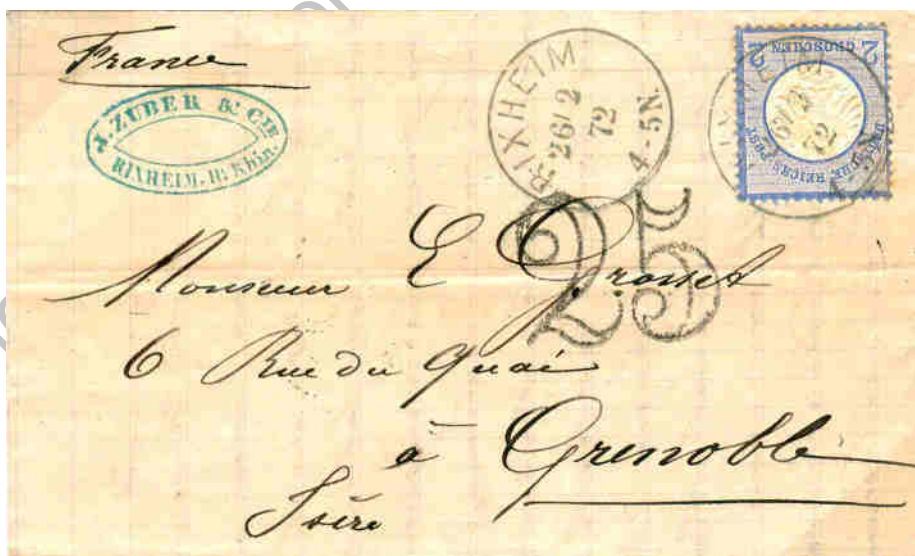 France
J. ZUBER & CIE
RIXHEIM. Ht Rhin.
RIXHEIM
26/2
72
4-5N.
2 GROSCHEN 2
DEUTSCHE REICHS-POST
25
Monsieur E Grosset
6 Rue du Quai
à Grenoble
Isère